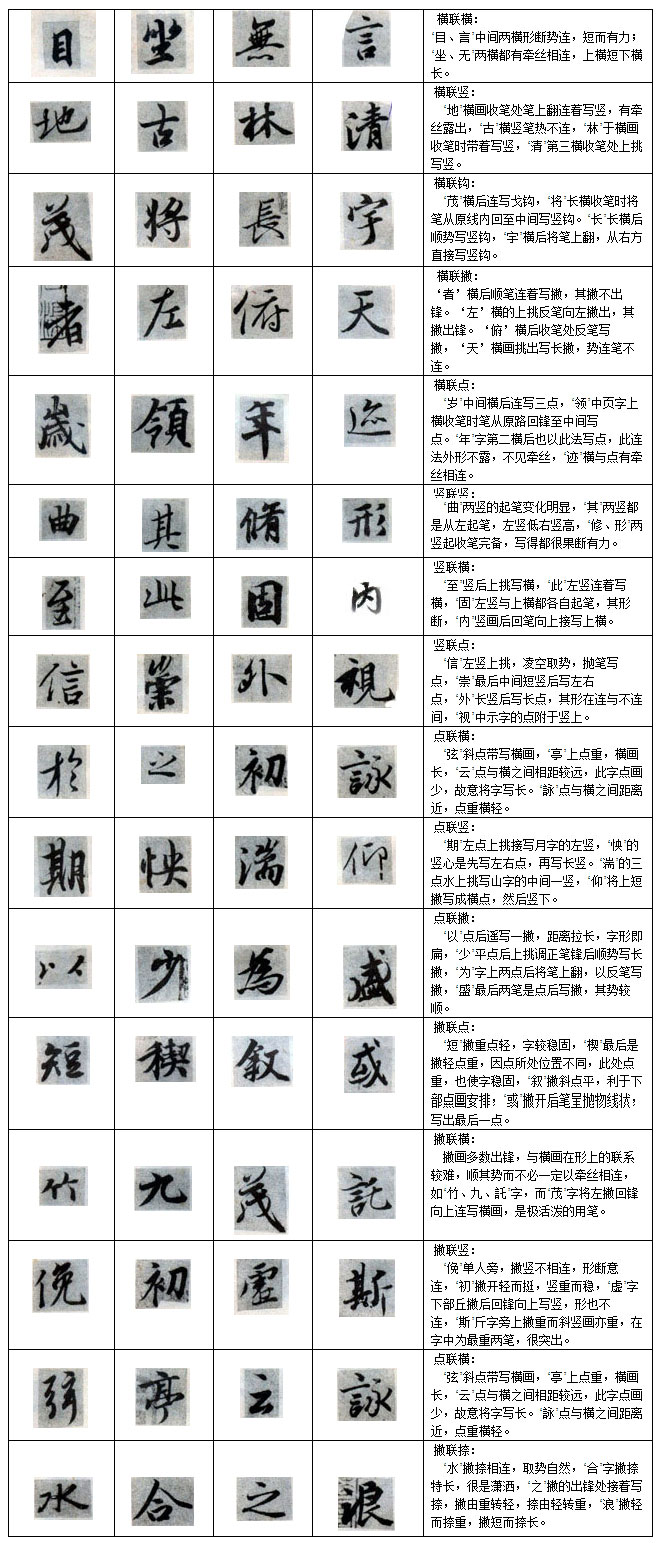 目 坐 無 言
横联横：
‘目、言’中间两横形断势连，短而有力；
‘坐、无’两横都有牵丝相连，上横短下横
长。
地 古 林 清
横联竖：
‘地’横画收笔处笔上翻连着写竖，有牵
丝露出，‘古’横竖笔热不连，‘林’于横画
收笔时带着写竖，‘清’第三横收笔处上挑
写竖。
茂 將 長 宇
横联钩：
‘茂’横后连写戈钩，‘将’长横收笔时将
笔从原线内回至中间写竖钩。‘长’长横后
顺势写竖钩，‘宇’横后将笔上翻，从右方
直接写竖钩。
者 左 俯 天
横联撇：
‘者’横后顺笔连着写撇，其撇不出
锋。‘左’横的上挑反笔向左撇出，其
撇出锋。‘俯’横后收笔处反笔写
撇，‘天’横画挑出写长撇，势连笔不
连。
歲 領 年 迹
横联点：
‘岁’中间横后连写三点，‘领’中页字上
横收笔时笔从原路回锋至中间写
点。‘年’字第二横后也以此法写点，此连
法外形不露，不见牵丝，‘迹’横与点有牵
丝相连。
曲 其 脩 形
竖联竖：
‘曲’两竖的起笔变化明显，‘其’两竖都
是从左起笔，左竖低右竖高，‘修、形’两
竖起收笔完备，写得都很果断有力。
至 此 固 内
竖联横：
‘至’竖后上挑写横，‘此’左竖连着写
横，‘固’左竖与上横都各自起笔，其形
断，‘内’竖画后回笔向上接写上横。
信 崇 外 視
竖联点：
‘信’左竖上挑，凌空取势，抛笔写
点，‘崇’最后中间短竖后写左右
点，‘外’长竖后写长点，其形在连与不连
间，‘视’中示字的点附于竖上。
於 之 初 詠
点联横：
‘弦’斜点带写横画，‘亭’上点重，横画
长，‘云’点与横之间相距较远，此字点画
少，故意将字写长。‘詠’点与横之间距离
近，点重横轻。
期 怏 湍 仰
点联竖：
‘期’左点上挑接写月字的左竖，‘怏’的
竖心是先写左右点，再写长竖。‘湍’的三
点水上挑写山字的中间一竖，‘仰’将上短
撇写成横点，然后竖下。
以 少 為 盛
点联撇：
‘以’点后遥写一撇，距离拉长，字形即
扁，‘少’平点后上挑调正笔锋后顺势写长
撇，‘为’字上两点后将笔上翻，以反笔写
撇，‘盛’最后两笔是点后写撇，其势较
顺。
短 稧 叙 或
撇联点：
‘短’撇重点轻，字较稳固，‘楔’最后是
撇轻点重，因点所处位置不同，此处点
重，也使字稳固，‘叙’撇斜点平，利于下
部点画安排；‘或’撇开后笔呈抛物线状；
写出最后一点。
竹 九 茂 託
撇联横：
撇画多数出锋，与横画在形上的联系
较难，顺其势而不必一定以牵丝相连，
如‘竹、九、託’字，而‘茂’字将左撇回锋
向上连写横画，是极活泼的用笔。
俛 初 虚 斯
撇联竖：
‘俛’单人旁，撇竖不相连，形断意
连，‘初’撇开轻而挺，竖重而稳，‘虚’字
下部丘撇后回锋向上写竖，形也不
连，‘斯’斤字旁上撇重而斜竖画亦重，在
字中为最重两笔，很突出。
弦 亭 云 詠
点联横：
‘弦’斜点带写横画，‘亭’上点重，横画
长，‘云’点与横之间相距较远，此字点画
少，故意将字写长。‘詠’点与横之间距离
近，点重横轻。
水 合 之 浪
撇联捺：
‘水’撇捺相连，取势自然，‘合’字撇捺
特长，很是潇洒，‘之’撇的出锋处接着写
捺，撇由重转轻，捺由轻转重，‘浪’撇轻
而捺重，撇短而捺长。